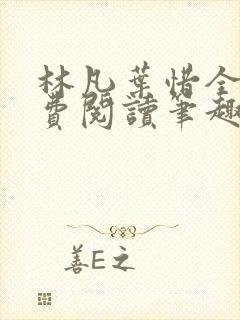 林凡葉惜全
費閱讀筆趣
善E之